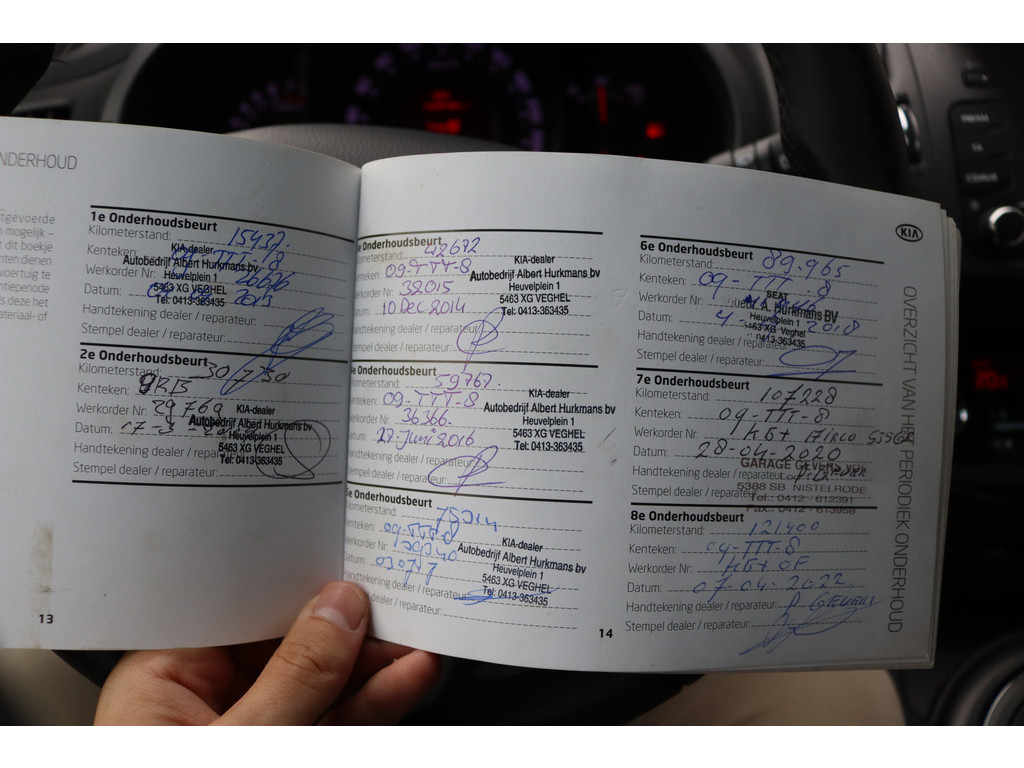 NDERHOUD
tgevoerde
n mogelijk –
t dit boekje
nten dienen
voertuig te
ntieperiode
s deze het
ateriaal- of
1e Onderhoudsbeurt
Kilometerstand: 15437.
Kenteken:
KIA-dealer
Autobedrijf Albert Hurkmans bv
Werkorder Nr:
Heuvelplein 1
5463 XG VEGHEL
Datum:
Tel: 0413-363435
Handtekening dealer / reparateur:
Stempel dealer / reparateur:
2e Onderhoudsbeurt
Kilometerstand: 30750
Kenteken:
Werkorder Nr: 29769
KIA-dealer
Autobedrijf Albert Hurkmans bv
Datum:
Heuvelplein 1
5463 XG VEGHEL
Handtekening dealer / reparateur:
Tel: 0413-363435
Stempel dealer / reparateur:
13
e Onderhoudsbeurt
Kilometerstand: 42672
KIA-dealer
Kenteken: 09-TTT-8
Autobedrijf Albert Hurkmans bv
Werkorder Nr: 32015
Heuvelplein 1
5463 XG VEGHEL
Datum: 10 Dec 2014
Tel: 0413-363435
Handtekening dealer / reparateur:
Stempel dealer / reparateur:
e Onderhoudsbeurt
Kilometerstand: 59767.
KIA-dealer
Kenteken: 09-TTT-8
Autobedrijf Albert Hurkmans bv
Werkorder Nr: 36366.
Heuvelplein 1
5463 XG VEGHEL
Datum: Juni 2016
Tel: 0413-363435
Handtekening dealer / reparateur:
Stempel dealer / reparateur:
e Onderhoudsbeurt
Kilometerstand:
Kenteken: 09-TTT-8
KIA-dealer
Autobedrijf Albert Hurkmans bv
Werkorder Nr:
Heuvelplein 1
Datum:
5463 XG VEGHEL
Handtekening dealer / reparateur:
Tel: 0413-363435
Stempel dealer / reparateur:
14
KIA
6e Onderhoudsbeurt
Kilometerstand: 89.965
Kenteken: 09-TTT-8
SEAT
Werkorder Nr:
A. Hurkmans BV
Heuvelplein 1
Datum: 4- 2018
5463 XG Veghel
0413-363435
Handtekening dealer / reparateur:
Stempel dealer / reparateur:
7e Onderhoudsbeurt
Kilometerstand: 107228
Kenteken: 09-TTT-8
Werkorder Nr:
Datum: 28-04-2020
GARAGE GEVERS VOF
Handtekening dealer / reparateur:
5388 SB NISTELRODE
Stempel dealer / reparateur:
Tel.: 0412-612391
Fax.: 0412-613958
8e Onderhoudsbeurt
Kilometerstand: 121400
Kenteken: 09-TTT-8
Werkorder Nr:
Datum: 07-04-2022
Handtekening dealer / reparateur:
Stempel dealer / reparateur:
OVERZICHT VAN HET PERIODIEK ONDERHOUD